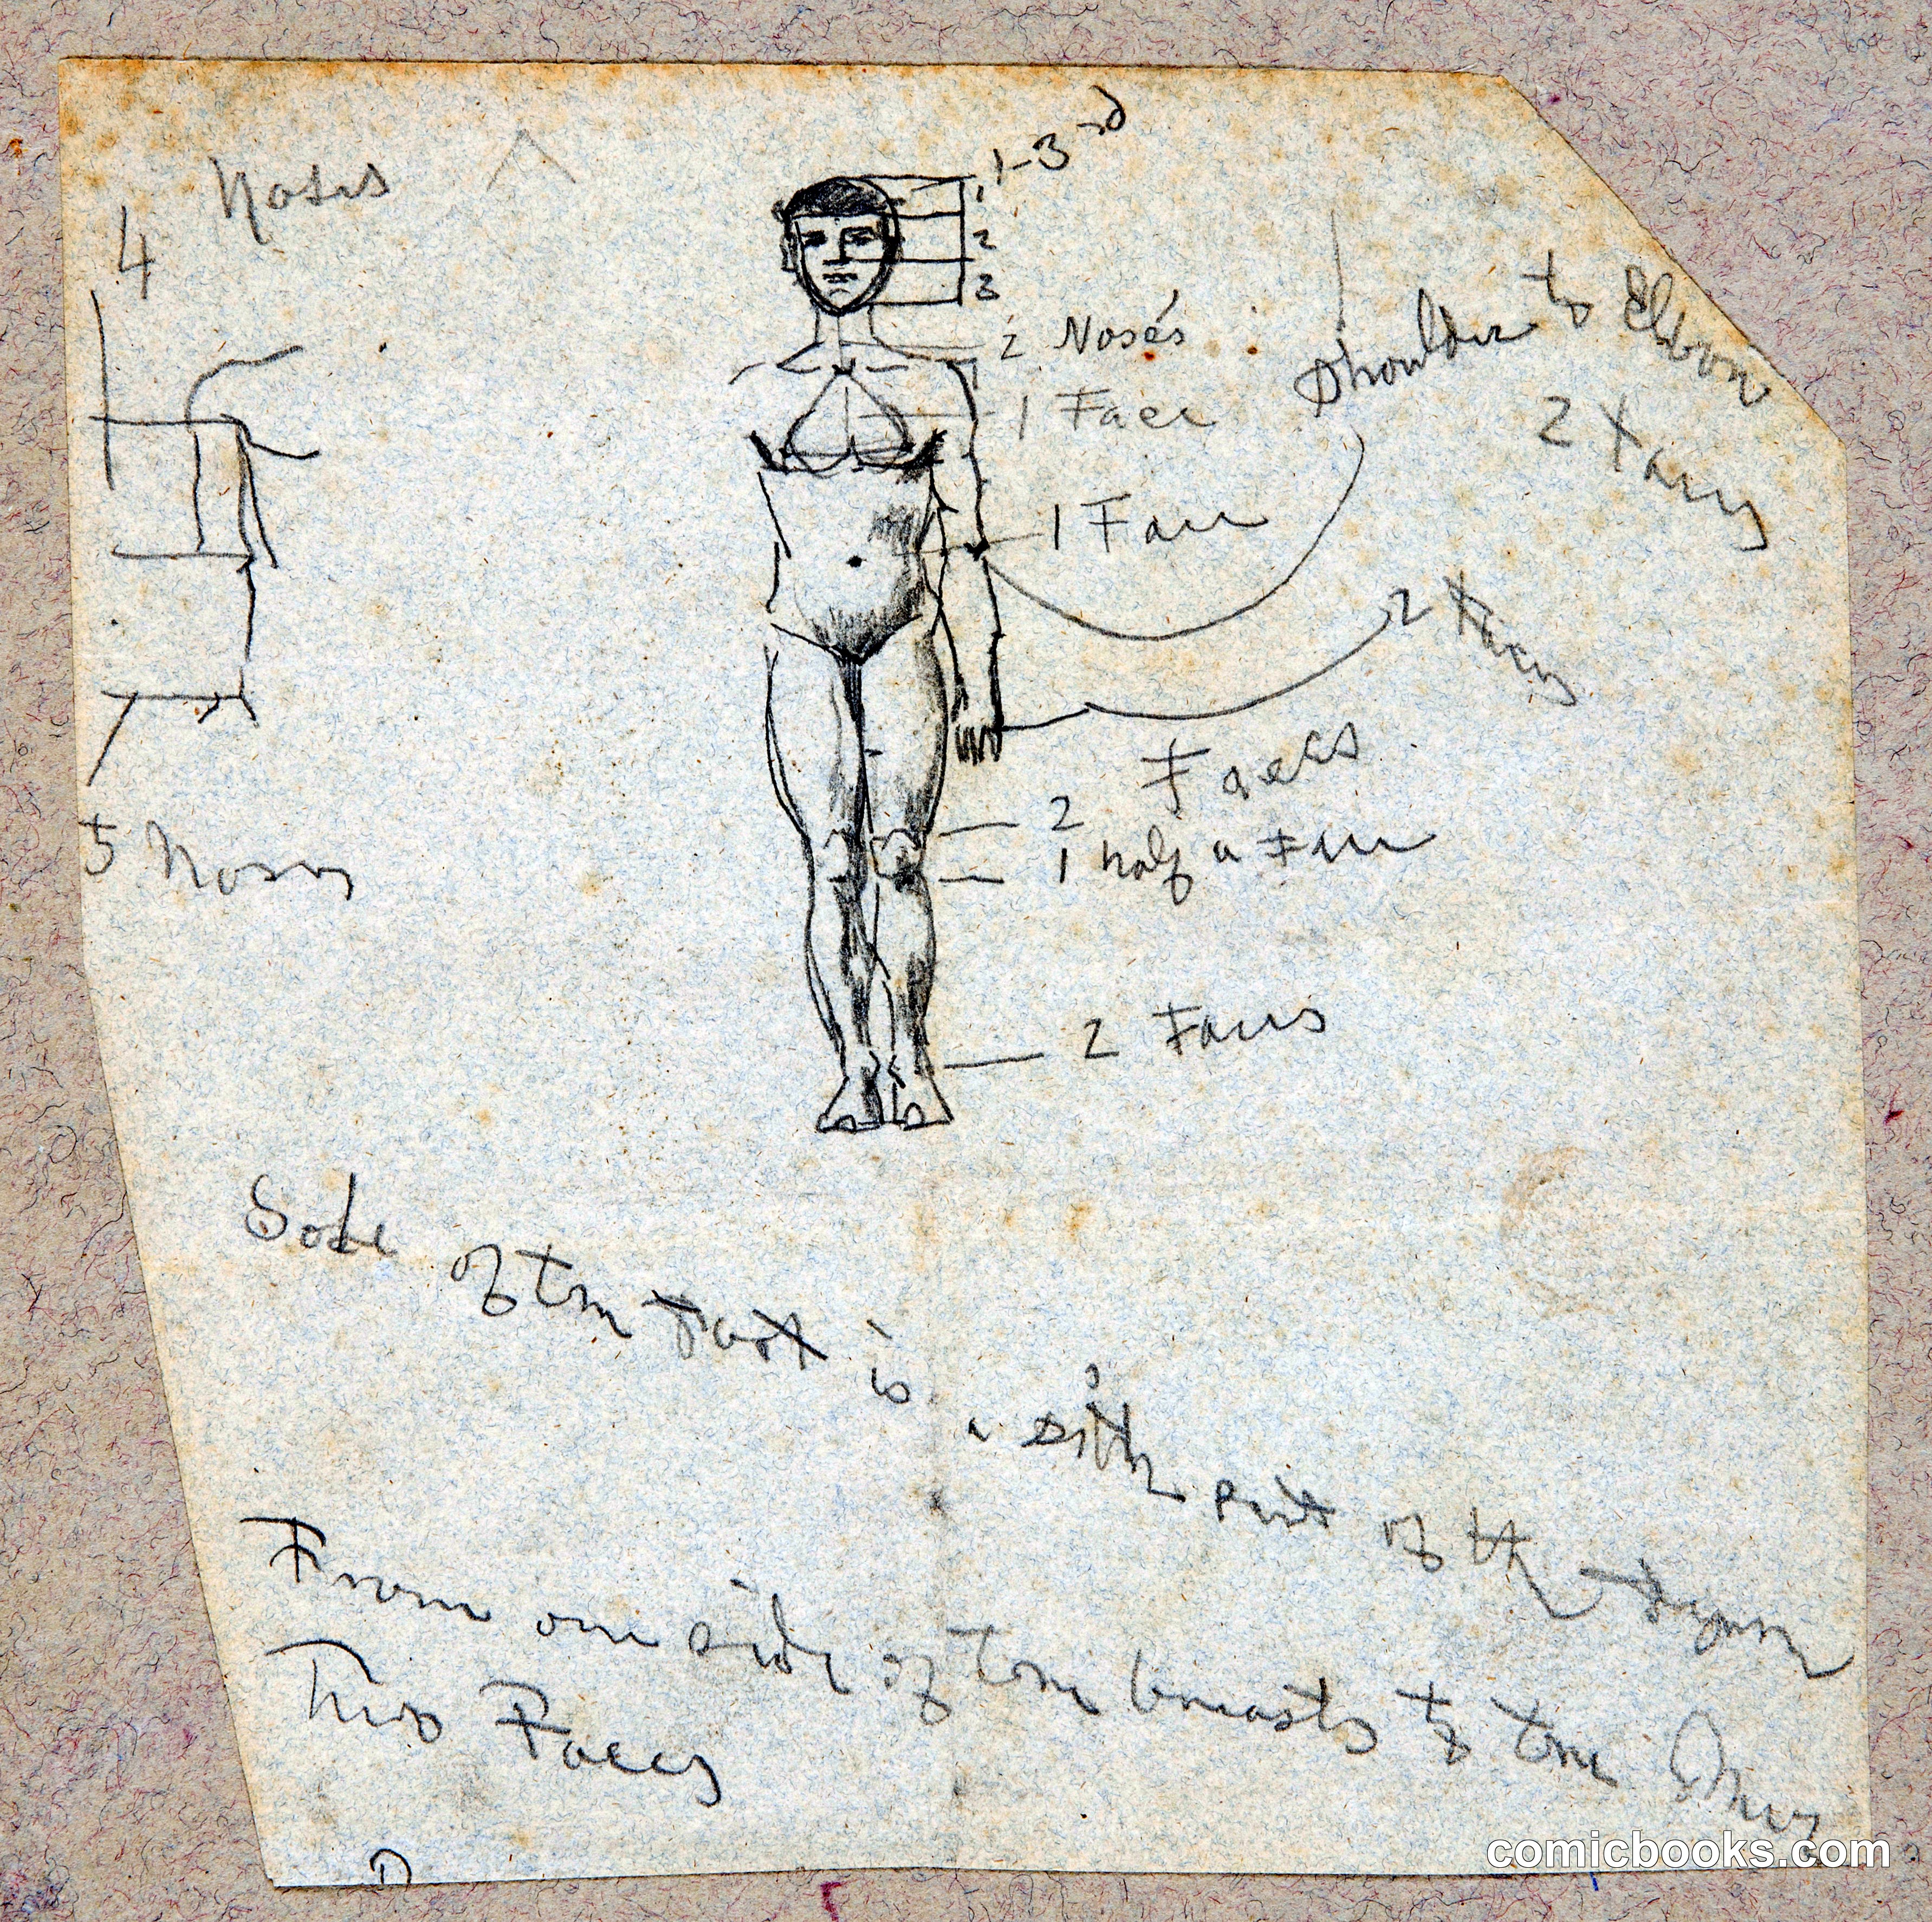 1-3rd
Noses
4
1
2
3
2 Nosés
Shoulder to Elbow
2 Faces
1 Face
1 Face
2 Faces
Faces
2
1 half a Face
5 Noses
2 Faces
Sole of the Foot is a sixth part of the Figure
From one side of the breasts to the
Two Faces
comicbooks.com